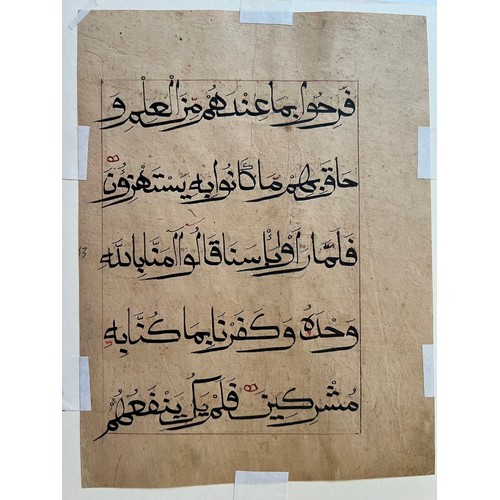 فَرِحُوا بِمَا عِنْدَهُمْ مِّنَ الْعِلْمِ وَ
حَاقَ بِهِمْ مَّا كَانُوا بِهِ يَسْتَهْزِؤُنَ
فَلَمَّا رَاَوْا بَأْسَنَا قَالُوا آمَنَّا بِاللّٰهِ
وَحْدَهُ وَكَفَرْنَا بِمَا كُنَّا بِهِ
مُشْرِكِينَ فَلَمْ يَكُ يَنْفَعُهُمْ